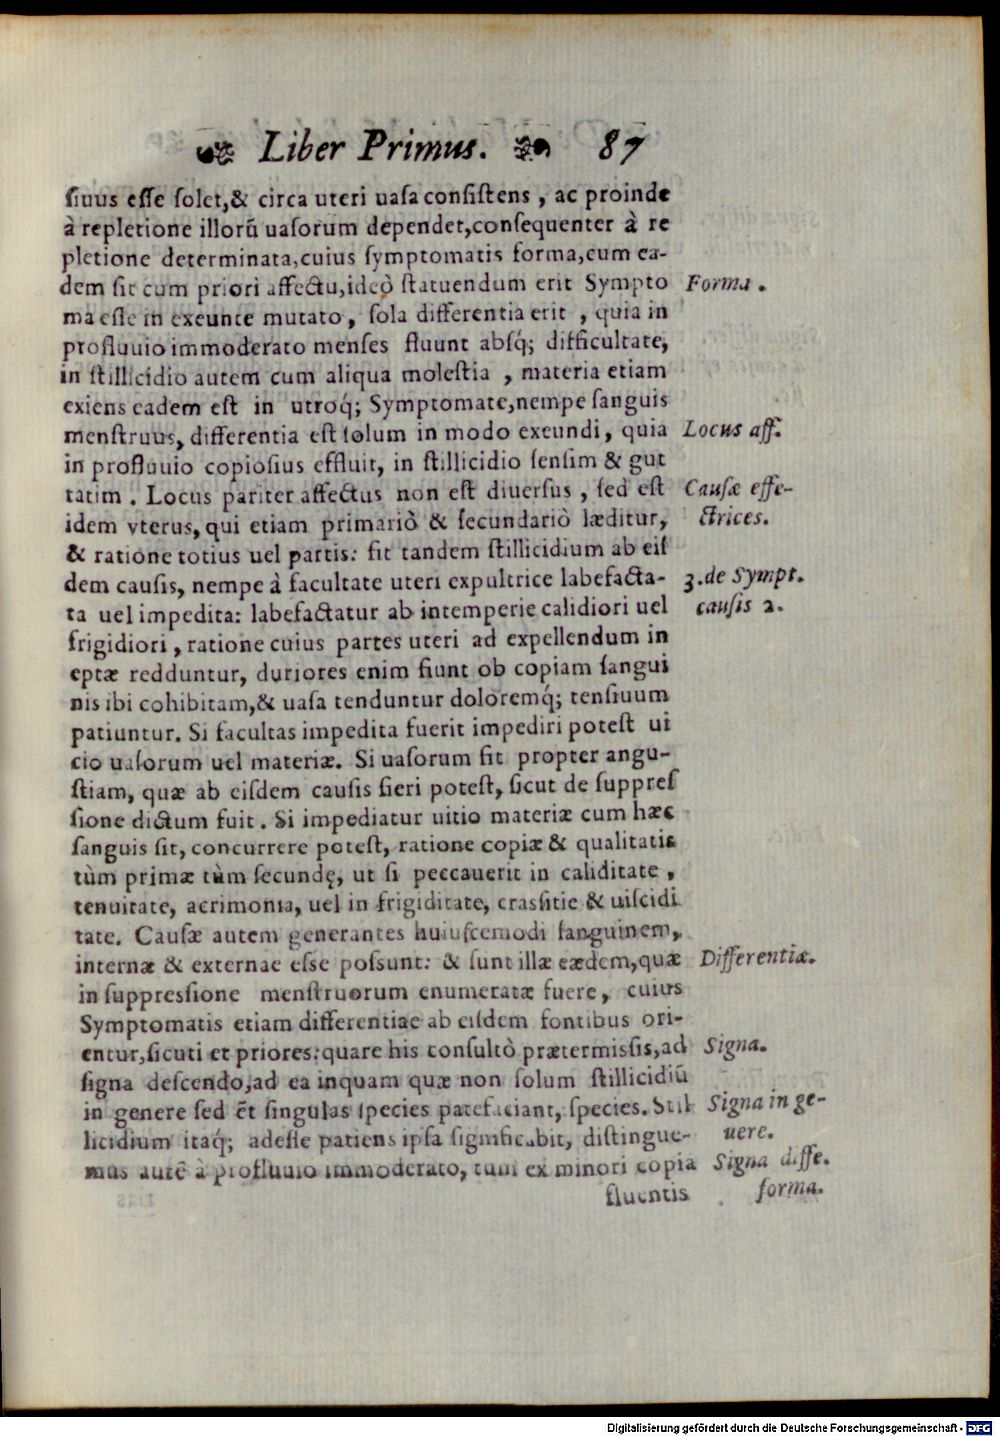 Liber Primus. 87
siuus esse solet,& circa uteri uasa consistens, ac proinde
à repletione illorũ uasorum dependet,consequenter à re
pletione determinata,cuius symptomatis forma,cum ea-
dem sit cum priori affectu,ideò statuendum erit Sympto
Forma.
ma esse in exeunte mutato, sola differentia erit, quia in
profluuio immoderato menses fluunt absq́; difficultate,
in stillicidio autem cum aliqua molestia, materia etiam
exiens eadem est in utroq́; Symptomate,nempe sanguis
menstruus, differentia est solum in modo exeundi, quia
Locus aff.
in profluuio copiosius effluit, in stillicidio sensim & gut
tatim. Locus pariter affectus non est diuersus, sed est
Causæ effe-
idem vterus, qui etiam primariò & secundariò læditur,
ctrices.
& ratione totius uel partis: fit tandem stillicidium ab eis
dem causis, nempe à facultate uteri expultrice labefacta-
3.de Sympt.
ta uel impedita: labefactatur ab intemperie calidiori uel
causis 2.
frigidiori, ratione cuius partes uteri ad expellendum in
eptæ redduntur, duriores enim fiunt ob copiam sangui
nis ibi cohibitam,& uasa tenduntur doloremq́; tensiuum
patiuntur. Si facultas impedita fuerit impediri potest ui
cio uasorum uel materiæ. Si uasorum fit propter angu-
stiam, quæ ab eisdem causis fieri potest, sicut de suppres
sione dictum fuit. Si impediatur uitio materiæ cum hæc
sanguis sit, concurrere potest, ratione copiæ & qualitatis
tùm primæ tùm secundę, ut si peccauerit in caliditate,
tenuitate, acrimonia, uel in frigiditate, crassitie & uiscidi
tate. Causæ autem generantes huiuscemodi sanguinem,
internæ & externae esse possunt: & sunt illæ eædem,quæ
Differentiæ.
in suppressione menstruorum enumeratæ fuere, cuius
Symptomatis etiam differentiae ab eisdem fontibus ori-
entur,sicuti et priores:quare his consultò prætermissis,ad
Signa.
signa descendo,ad ea inquam quæ non solum stillicidiũ
in genere sed ẽt singulas species patefaciant, species. Stil
Signa in ge-
licidium itaq́; adesse patiens ipsa significabit, distingue-
nere.
mus autẽ à profluuio immoderato, tum ex minori copia
Signa diffe.
fluentis
forma.
Digitalisierung gefördert durch die Deutsche Forschungsgemeinschaft - DFG